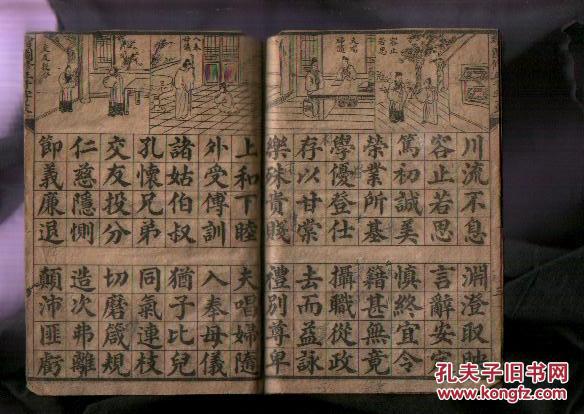 容止
若思
夫唱
婦隨
入奉
母儀
交友投分
川流不息 淵澄取映
容止若思 言辭安定
篤初誠美 慎終宜令
榮業所基 籍甚無竟
學優登仕 攝職從政
存以甘棠 去而益詠
樂殊貴賤 禮別尊卑
上和下睦 夫唱婦隨
外受傅訓 入奉母儀
諸姑伯叔 猶子比兒
孔懷兄弟 同氣連枝
交友投分 切磨箴規
仁慈隱惻 造次弗離
節義廉退 顛沛匪虧
孔夫子旧书网
www.kongfz.com